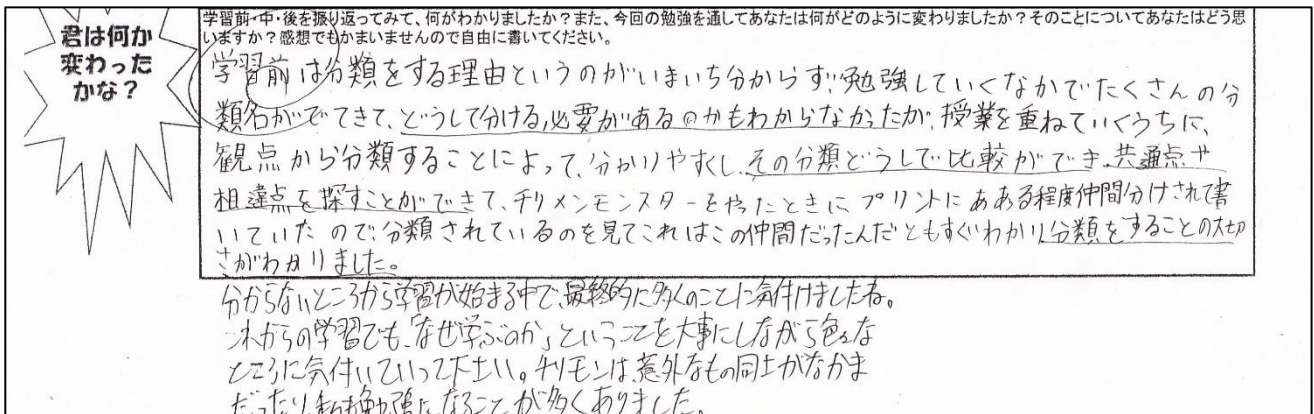 君は何か
変わった
かな？
学習前・中・後を振り返ってみて、何がわかりましたか？また、今回の勉強を通してあなたは何がどのように変わりましたか？そのことについてあなたはどう思
いますか？感想でもかまいませんので自由に書いてください。
学習前は分類をする理由というのがいまいち分からず、勉強していくなかでたくさんの分
類名がでてきて、どうして分ける必要があるのかもわからなかったが、授業を重ねていくうちに、
観点から分類することによって、分かりやすくし、その分類どうしで比較ができ、共通点や
相違点を探すことができて、チリメンモンスターをやったときに、プリントにあある程度仲間分けされて書
いていたので、分類されているのを見てこれはこの仲間だったんだともすぐわかり、分類をすることの大切
さがわかりました。
分からないところから学習が始まる中で、最終的に多くのことに気付けましたね。
これからの学習でも、「なぜ学ぶのか」ということを大事にしながら色々な
ところに気付いていって下さい。チリモンは、意外なもの同士がなかま
だったり、私も勉強になることが多くありました。